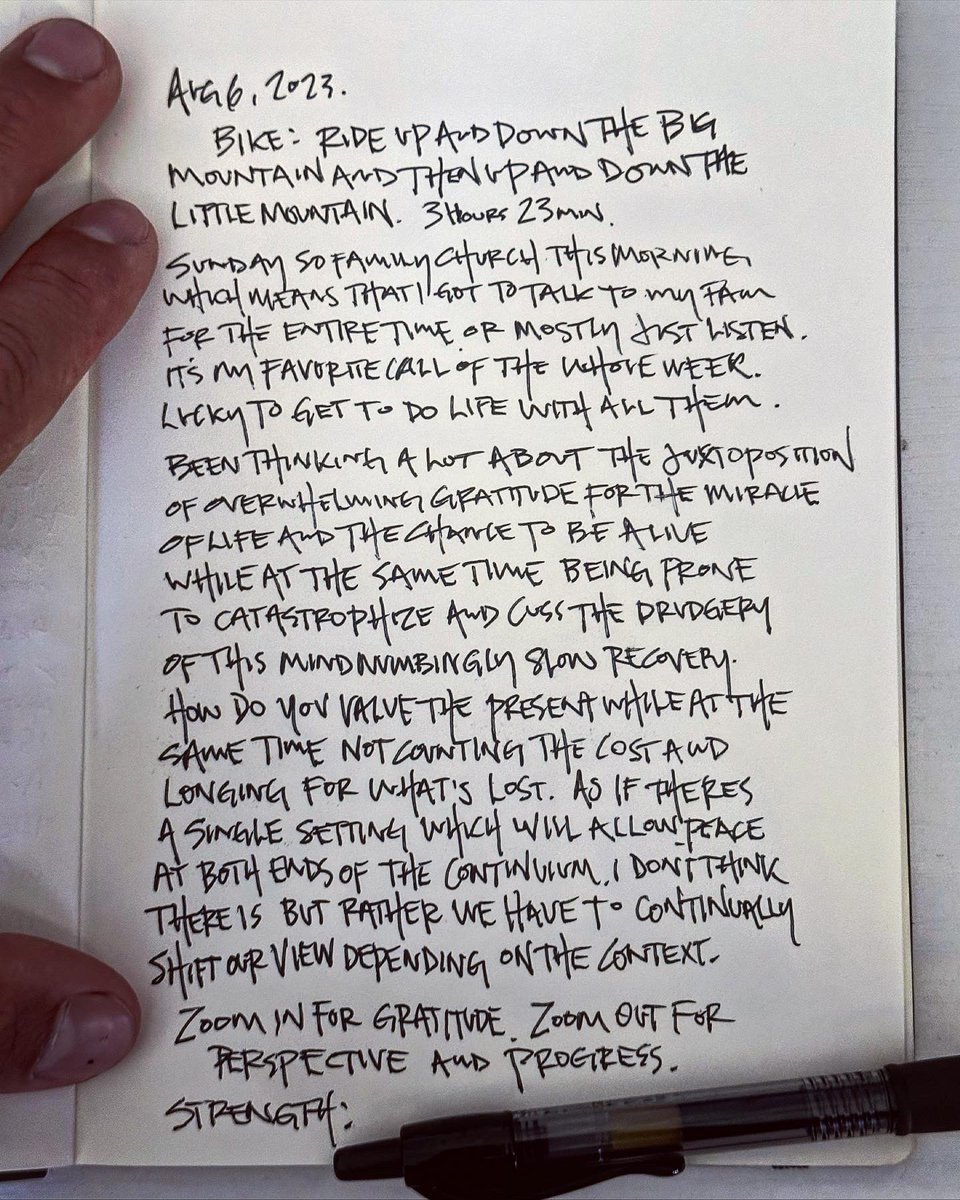 AUG 6, 2023.
BIKE: RIDE UP AND DOWN THE BIG
MOUNTAIN AND THEN UP AND DOWN THE
LITTLE MOUNTAIN. 3 HOURS 23 MIN.
SUNDAY SO FAMILY CHURCH THIS MORNING
WHICH MEANS THAT I GOT TO TALK TO MY FAM
FOR THE ENTIRE TIME OR MOSTLY JUST LISTEN.
IT'S MY FAVORITE CALL OF THE WHOLE WEEK.
LUCKY TO GET TO DO LIFE WITH ALL THEM.
BEEN THINKING A LOT ABOUT THE JUXTOPOSITION
OF OVERWHELMING GRATITUDE FOR THE MIRACLE
OF LIFE AND THE CHANCE TO BE ALIVE
WHILE AT THE SAME TIME BEING PRONE
TO CATASTROPHIZE AND CUSS THE DRUDGERY
OF THIS MIND NUMBINGLY SLOW RECOVERY.
HOW DO YOU VALUE THE PRESENT WHILE AT THE
SAME TIME NOT COUNTING THE COST AND
LONGING FOR WHAT'S LOST. AS IF THERES
A SINGLE SETTING WHICH WILL ALLOW PEACE
AT BOTH ENDS OF THE CONTINUIUM. I DON'T THINK
THERE IS BUT RATHER WE HAVE TO CONTINUALLY
SHIFT OUR VIEW DEPENDING ON THE CONTEXT.
ZOOM IN FOR GRATITUDE. ZOOM OUT FOR
PERSPECTIVE AND PROGRESS.
STRENGTH: